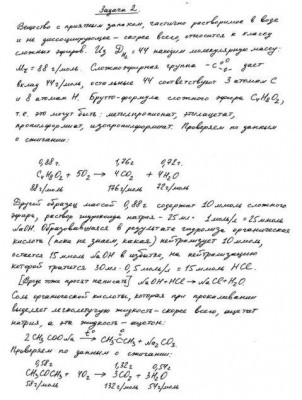 Задача 2.
Вещество с приятным запахом, частично растворимое в воде
и не диссоциирующее - скорее всего, относится к классу
сложных эфиров. Из D H₂ = 44 находим молекулярную массу:
Mr = 88 г/моль. Сложноэфирная группа -C O O- дает
вклад 44 г/моль, остальные 44 соответствуют 3 атомам C
и 8 атомам H. Брутто-формула сложного эфира C₄H₈O₂,
т.е. это могут быть: метилпропионат, этилацетат,
пропилформиат, изопропилформиат. Проверяем по данным
о сжигании:
0,88г. 1,76г 0,72г.
C₄H₈O₂ + 5O₂ → 4CO₂ + 4H₂O
88г/моль 176г/моль 72г/моль
Другой образец массой 0,88г содержит 10 ммоль сложного
эфира, раствор гидроксида натрия - 25мл · 1моль/л = 25ммоль
NaOH. Образовавшаяся в результате гидролиза органическая
кислота (пока не знаем, какая) нейтрализует 10 ммоль,
остается 15 ммоль NaOH в избытке, на нейтрализацию
которой тратится 30мл · 0,5моль/л = 15ммоль HCl.
просят написать] NaOH + HCl → NaCl + H₂O.
Соль органической кислоты, которая при прокаливании
выделяет легколетучую жидкость - скорее всего, ацетат
натрия, а эта жидкость - ацетон:
2 CH₃COONa → CH₃CCH₃ + Na₂CO₃.
Проверяем по данным о сжигании:
0,58г 1,32г 0,54г
CH₃COCH₃ + 4O₂ → 3CO₂ + 3H₂O
58г/моль 132г/моль 54г/моль